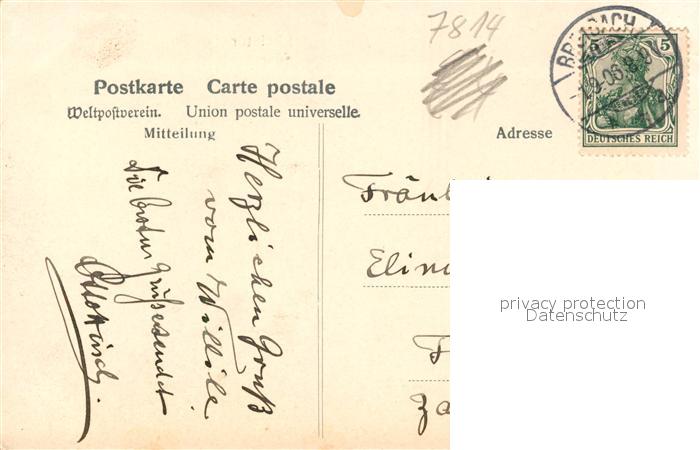 7814
5
DEUTSCHES REICH
Postkarte Carte postale
Weltpostverein. Union postale universelle.
Mitteilung
Adresse
Herzlichen Gruß
vom Willi
Die besten
Grüße sendet
Fräul
Elin
F
Za
privacy protection
Datenschutz